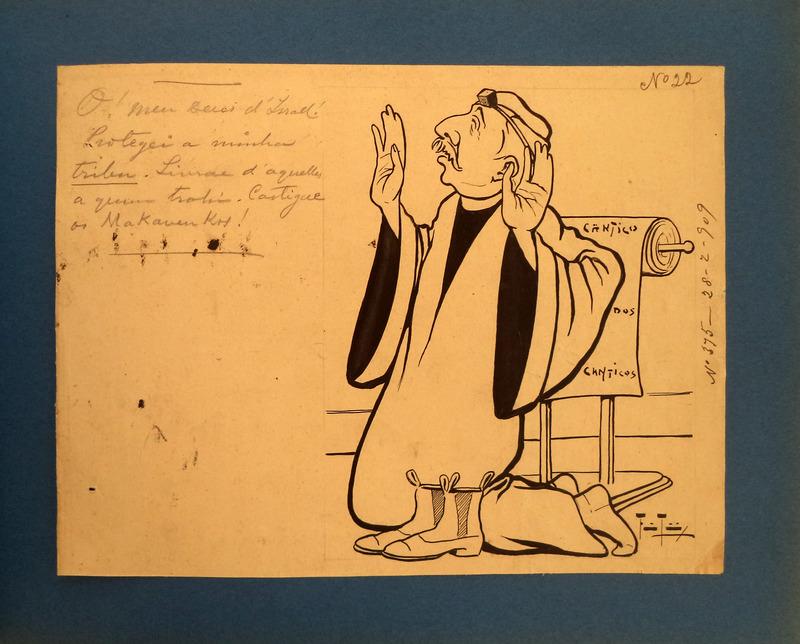 Nº 22
O! meu Deus d'Israel!
Protegei a minha
tribu. Livrae d'aquelles
a quem trahi. Castigae
os MaKavenKos!
CANTICO
DOS
CANTICOS
Nº 375 — 28-2-909